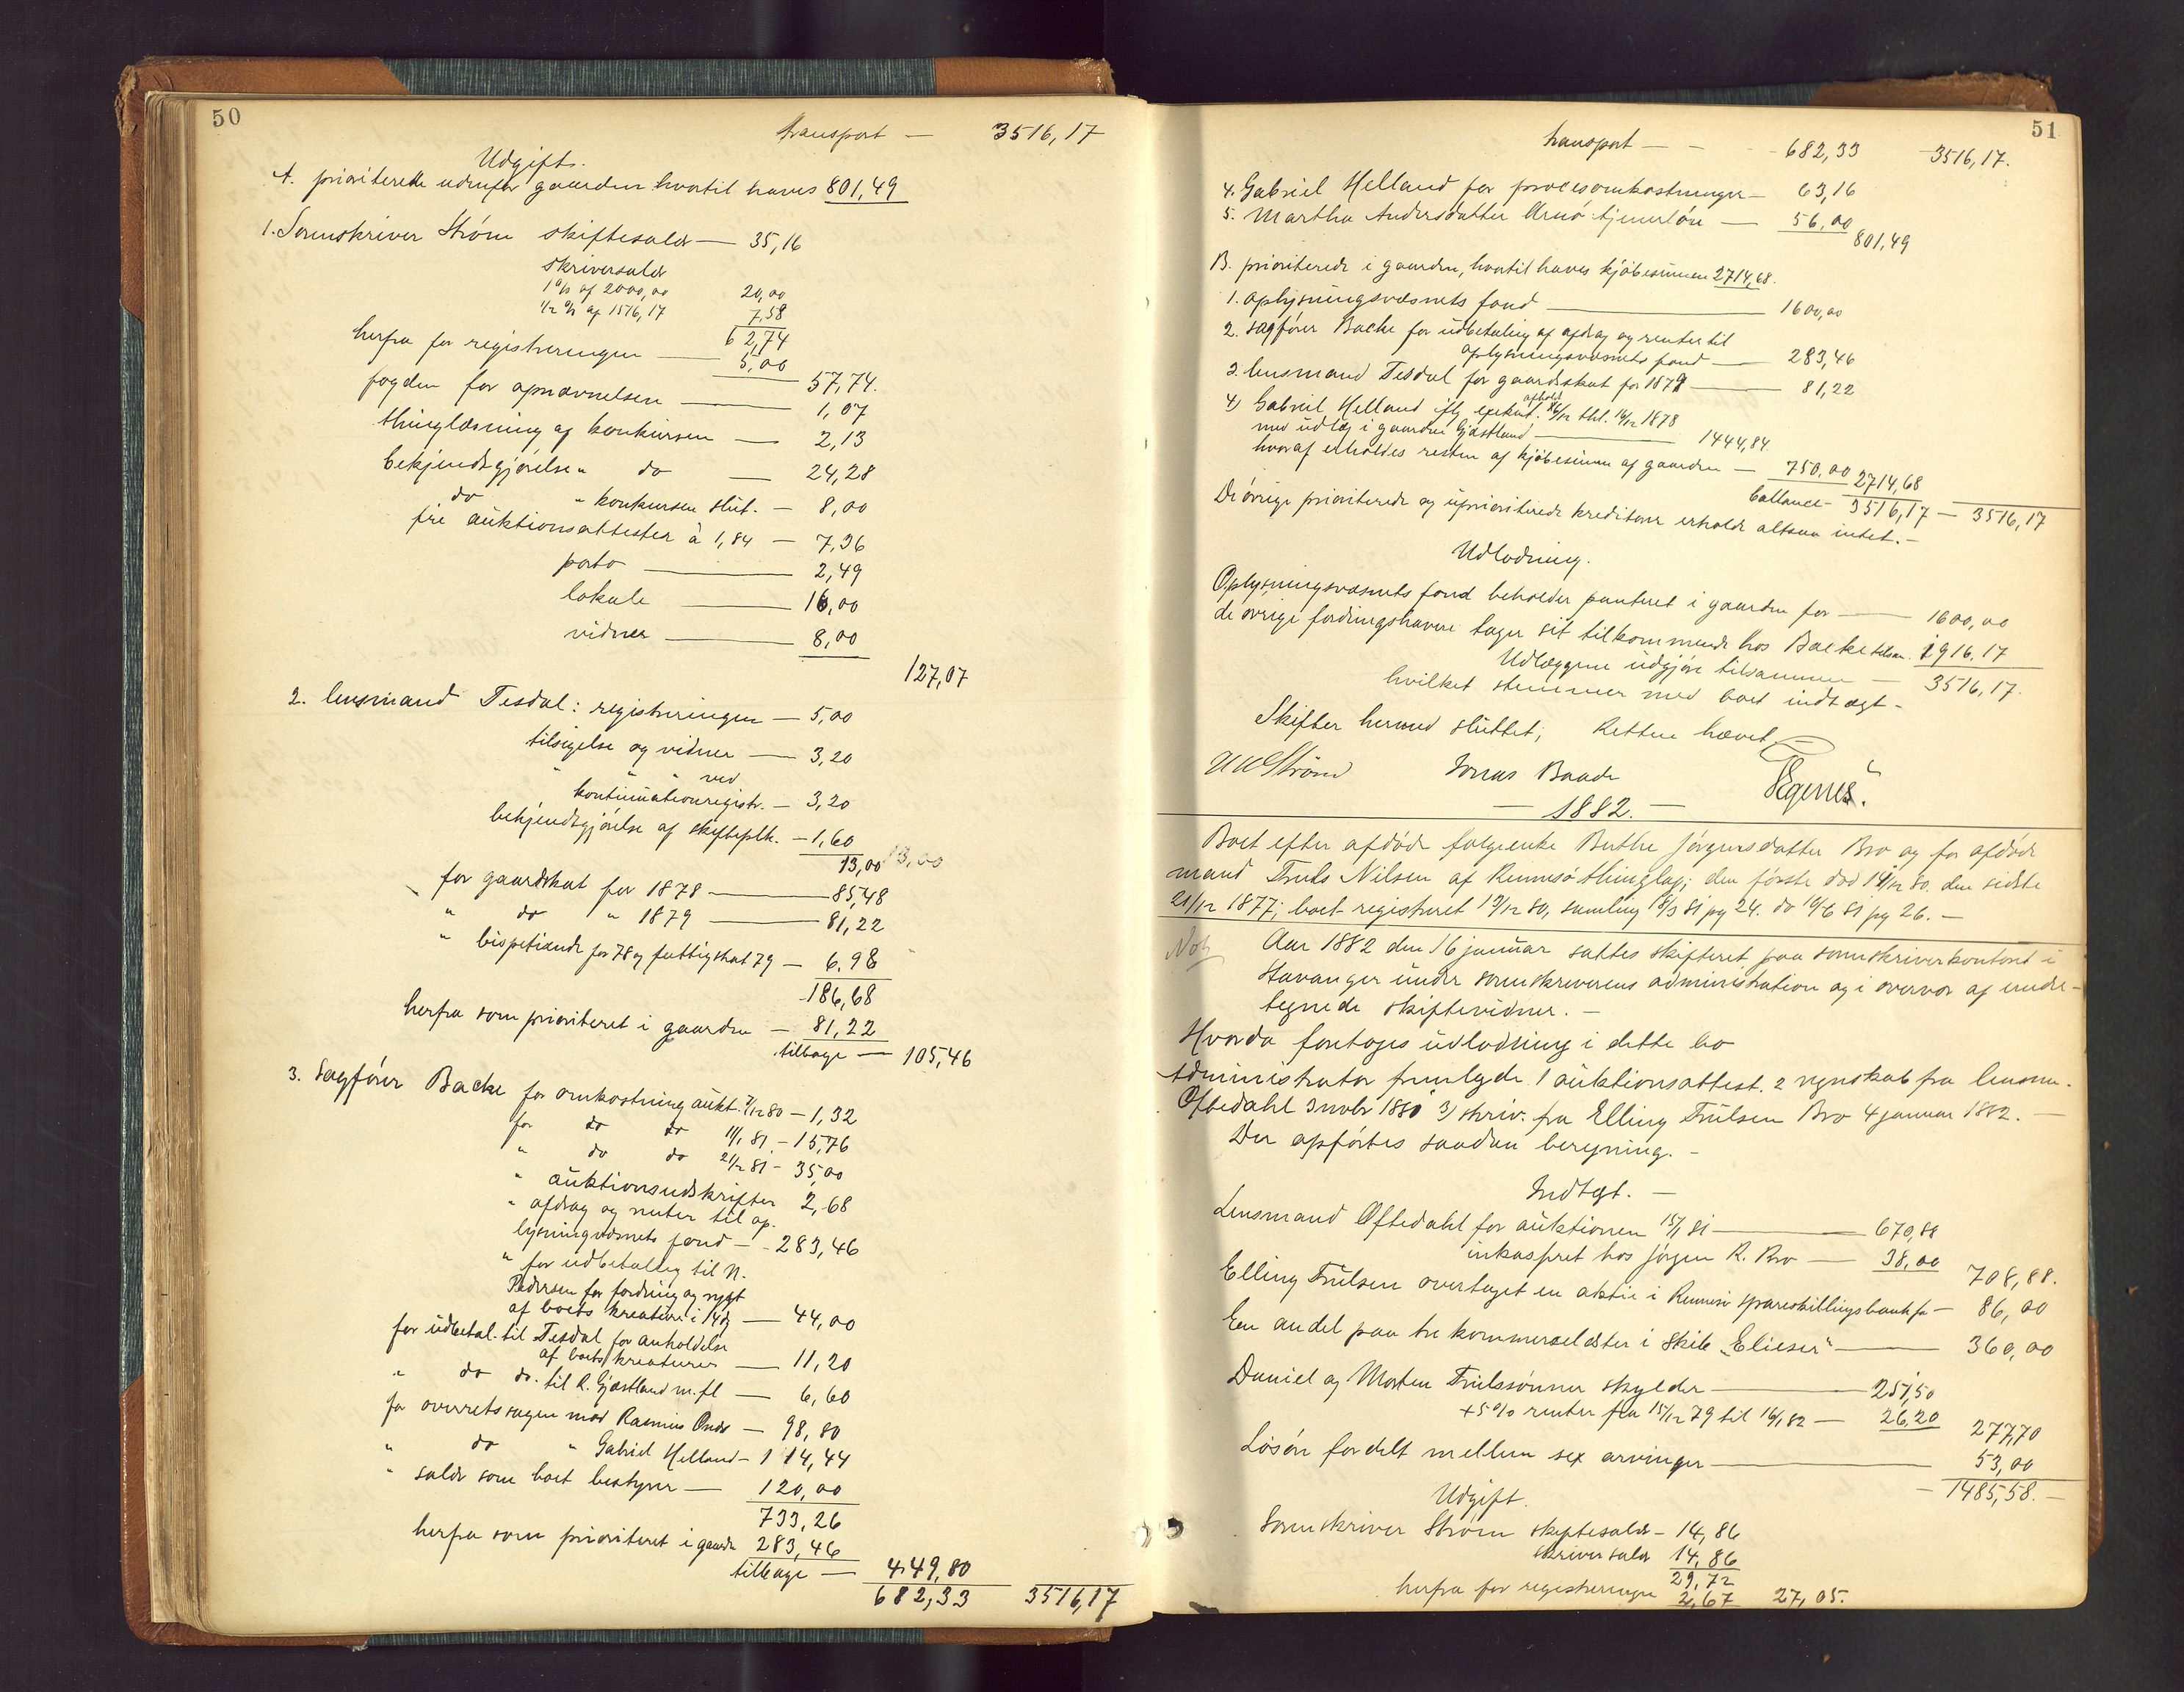 50
transport — 3516,17
Udgift.
A. prioriterede udenfor gaarden hvortil haves 801,49
1. Sorenskriver Strøm skiftesalær — 35,16
skriversalær
1 % af 2000,00 20,00
1/2 % af 1516,17 7,58
62,74
herfra for registreringen — 5,00
57,74.
fogden for opnævnelsen — 1,07
thinglæsning af konkursen — 2,13
bekjendtgjørelse " do — 24,28
do " konkursens slut. — 8,00
fire auktionsattester à 1,84 — 7,36
porto — 2,49
lokale — 16,00
vidner — 8,00
127,07
2. lensmand Tesdal: registreringen — 5,00
tilsigelse og vidner — 3,20
" " ved
kontinuationregistr. — 3,20
bekjendtgjørelse af skifteplk. — 1,60
13,00 13,00
for gaardskat for 1878 — 85,48
" do " 1879 — 81,22
" bispetiende for 78 og fattigskat 79 — 6,98
186,68
herfra som prioriteret i gaarden — 81,22
tilbage — 105,46
3. Sagfører Backe for omkostning aukt. 7/12 80 — 1,32
for do do 11/1 81 — 15,76
" do do 21/2 81 — 35,00
" auktionsudskrifter 2,68
" afdrag og renter til op-
lysningvæsnets fond — 283,46
" for udbetaling til N.
Pedersen for fordring og røgt
af boets kreaturer i 14dg — 44,00
for udbetal. til Tesdal for anholdelse
af boets kreaturer — 11,20
" do do. til R. Gjæstland m.fl — 6,60
for overretssagen mod Rasmus — 98,80
" do " Gabriel Helland — 114,44
" salær som boet bestyrer — 120,00
733,26
herfra som prioriteret i gaarde 283,46
tilbage — 449,80
682,33 3516,17
51
transport — 682,33 3516,17.
4. Gabriel Helland for procesomkostninger — 63,16
5. Martha Andersdatter Arnø tjenerløn — 56,00
801,49
B. prioriterede i gaarden, hvortil haves kjøbesummen 2714,68.
1. oplysningsvæsnets fond — 1600,00
2. sagfører Backe for udbetaling af afdrag og renter til
oplysningsvæsnets fond — 283,46
3. lensmand Tesdal for gaardskat for 1879 — 81,22
4) Gabriel Helland iflg exekut. afholdt 26/12 thl. 14/12 1878
med udlæg i gaarden Gjæstland — 1444,84
hvoraf erholdes resten af kjøbesummen af gaarden — 750,00 2714,68
ballance — 3516,17 — 3516,17
De øvrige prioriterede og uprioriterede kreditorer erholde altsaa intet. —
Udlodning.
Oplysningsvæsnets fond beholder panteret i gaarden for — 1600,00
de øvrige fordringshavere tager sit tilkommende hos Backe tilsm. 1916,17
Udlæggene udgjøre tilsammen — 3516,17.
hvilket stemmer med boets indtægt —
Skiftet hermed sluttet; Retten hævet
Strøm Jonas Baade Egenes.
— 1882. —
Boet efter afdøde folgeenke Berthe Jørgensdatter Bro og for afdøde
mand Truls Nilsen af Rennesø thinglag; den første død 14/12 80. den sidste
21/12 1877; boet registreret 17/12 80, samling 8/3 81 pg 24. do 10/6 81 pg 26. —
Not
Aar 1882 den 16 januar sattes skifteret paa sorenskriverkontoret i
Stavanger under sorenskriverens administration og i overvær af under-
tegnede skiftevidner. —
Hvorda foretoges udlodning i dette bo
Administrator fremlagde 1 auktionsattest. 2 regnskab fra lensm.
Oftedahl 3 novbr 1880 3) skriv. fra Elling Trulsen Bro 4 januar 1882. —
Der opførtes saadan beregning. —
Indtægt. —
Lensmand Oftedahl for auktionen 15/1 81 — 670,88
inkasseret hos Jørgen R. Bro — 38,00
708,88.
Elling Trulsen overtaget en aktie i Rennesø spareskillingsbank for — 86,00
En andel paa tre kommercelæster i skib „Elieser" — 360,00
Daniel og Morten Trulssønner skylder — 251,50
+5% renter fra 15/12 79 til 16/1 82 — 26,20
277,70
Løsøre fordelt mellem sex arvinger — 53,00
— 1485,58. —
Udgift.
Sorenskriver Strøm skiftesalær — 14,86
skriversalær 14,86
29,72
herfra for registreringen 2,67 27,05.